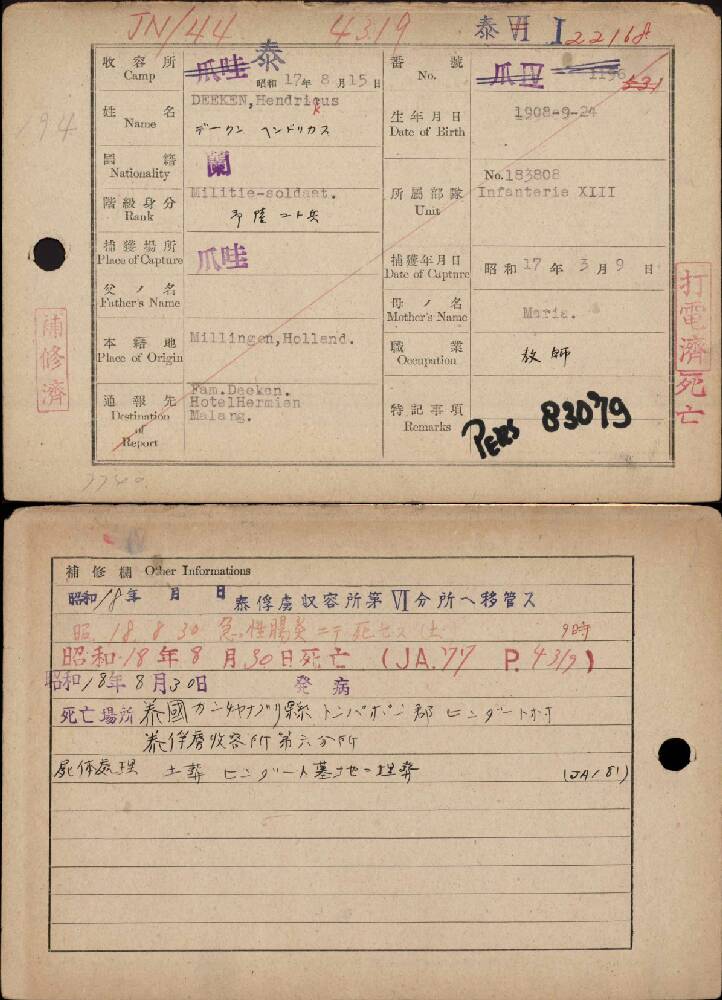 JN/44 4319 泰 VI I 22168
194
收容所 Camp 爪哇 泰 昭和17年8月15日 番號 No. 爪IV 1196 531
姓名 Name DEEKEN,Hendricus 生年月日 Date of Birth 1908-9-24
デークン ヘンドリカス
國籍 Nationality 蘭 所屬部隊 Unit No.183808
Infanterie XIII
階級身分 Rank Militie-soldaat.
捕獲場所 Place of Capture 爪哇 捕獲年月日 Date of Capture 昭和17年3月9日
父ノ名 Father's Name 母ノ名 Mother's Name Maria.
本籍地 Place of Origin Millingen,Holland. 職業 Occupation 教師
通報先 Destination of Report Fam.Deeken. 特記事項 Remarks PERS 83079
HotelHermien
Malang.
補修濟
打電濟 死亡
補修欄 Other Informations
昭和18年 月 日 泰俘虜収容所第VI分所ヘ移管ス
昭 18. 8 30 急性腸炎ニテ死亡ス 9時
昭和18年8月30日死亡 (JA.77 P.4319)
昭和18年8月30日 発病
死亡場所 泰國カンチヤナブリ縣トンパオポン郡ヒンダート村
泰俘虜收容所第六分所
屍体處理 土葬 ヒンダート墓地ニ埋葬 (JA181)